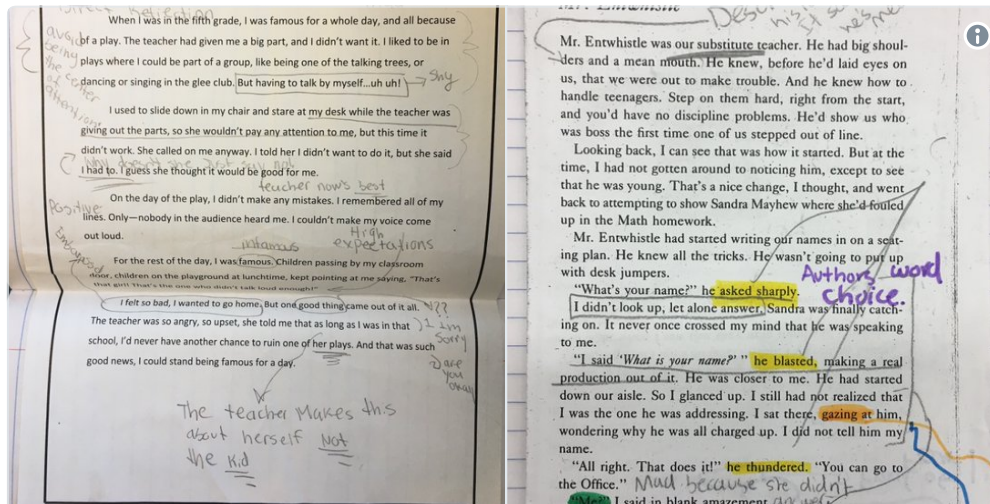 When I was in the fifth grade, I was famous for a whole day, and all because
of a play. The teacher had given me a big part, and I didn't want it. I liked to be in
plays where I could be part of a group, like being one of the talking trees, or
dancing or singing in the glee club. But having to talk by myself...uh uh!
Shy
I used to slide down in my chair and stare at my desk while the teacher was
giving out the parts, so she wouldn't pay any attention to me, but this time it
didn't work. She called on me anyway. I told her I didn't want to do it, but she said
Why doesn't she just say no?
I had to. I guess she thought it would be good for me.
teacher now's best
On the day of the play, I didn't make any mistakes. I remembered all of my
Positive
lines. Only—nobody in the audience heard me. I couldn't make my voice come
out loud.
High
infamous
expectations
For the rest of the day, I was famous. Children passing by my classroom
door, children on the playground at lunchtime, kept pointing at me saying, "That's
that girl! That's the one who didn't talk loud enough!"
I felt so bad, I wanted to go home. But one good thing came out of it all.
The teacher was so angry, so upset, she told me that as long as I was in that
school, I'd never have another chance to ruin one of her plays. And that was such
good news, I could stand being famous for a day.
I'm
Sorry
are
you
okay
The teacher makes this
about herself Not
the kid
Mr. Entwhistle was our substitute teacher. He had big shoul-
ders and a mean mouth. He knew, before he'd laid eyes on
us, that we were out to make trouble. And he knew how to
handle teenagers. Step on them hard, right from the start,
and you'd have no discipline problems. He'd show us who
was boss the first time one of us stepped out of line.
Looking back, I can see that was how it started. But at the
time, I had not gotten around to noticing him, except to see
that he was young. That's a nice change, I thought, and went
back to attempting to show Sandra Mayhew where she'd fouled
up in the Math homework.
Mr. Entwhistle had started writing our names in on a seat-
ing plan. He knew all the tricks. He wasn't going to put up
with desk jumpers.
Authors word
choice.
"What's your name?" he asked sharply.
I didn't look up, let alone answer. Sandra was finally catch-
ing on. It never once crossed my mind that he was speaking
to me.
"I said 'What is your name?' " he blasted, making a real
production out of it. He was closer to me. He had started
down our aisle. So I glanced up. I still had not realized that
I was the one he was addressing. I sat there, gazing at him,
wondering why he was all charged up. I did not tell him my
name.
"All right. That does it!" he thundered. "You can go to
the Office." Mad because she didn't
"Me?" I said in blank amazement